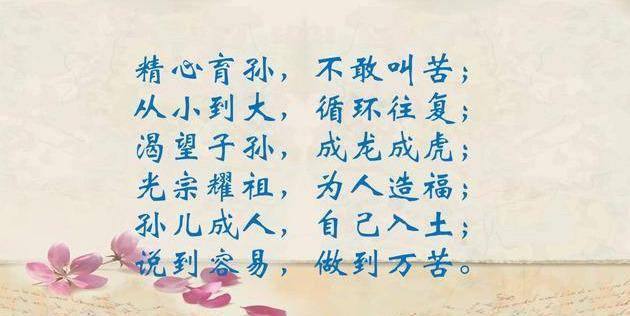 精心育孙，不敢叫苦；
从小到大，循环往复；
渴望子孙，成龙成虎；
光宗耀祖，为人造福；
孙儿成人，自己入土；
说到容易，做到万苦。